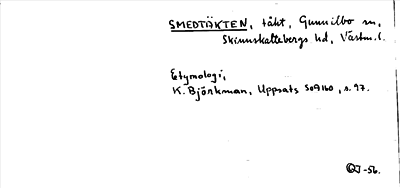 SMEDTÄKTEN, täkt, Gunnilbo sn,
Skinnskattebergs hd, Västm.l.
Etymologi,
K. Björkman, Uppsats SOA160, s. 97.
-56.